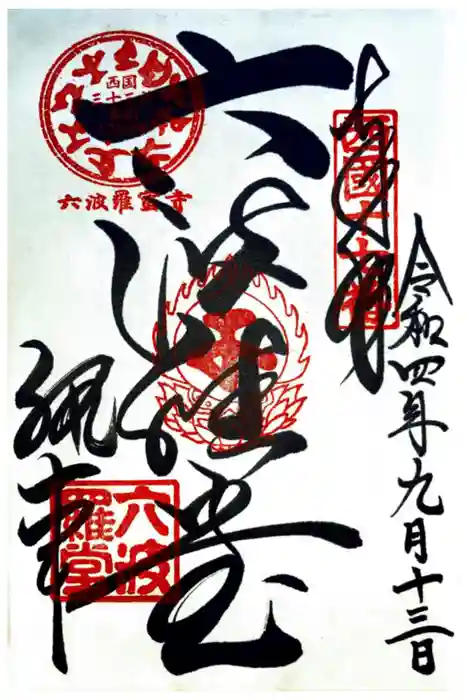 奉拝
西國十七番
令和四年九月十三日
六波羅堂
六波羅蜜寺
西国
三十三
六波羅堂